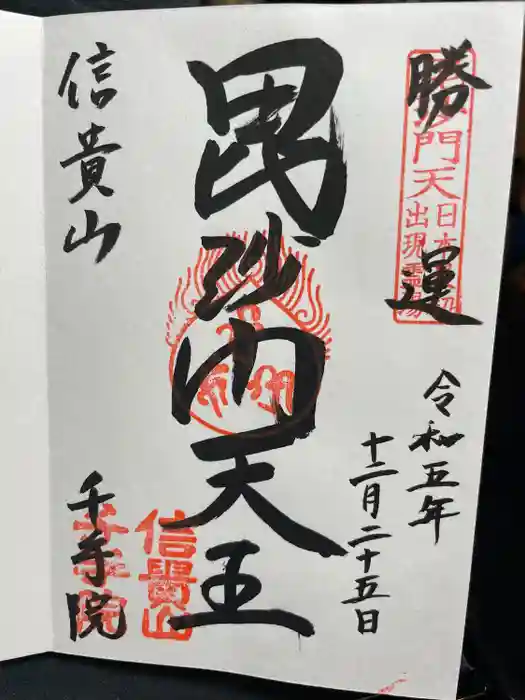 勝運
毘沙門天日本最初出現霊場
令和五年
十二月二十五日
毘沙門天王
信貴山
千手院
信貴山
千手院